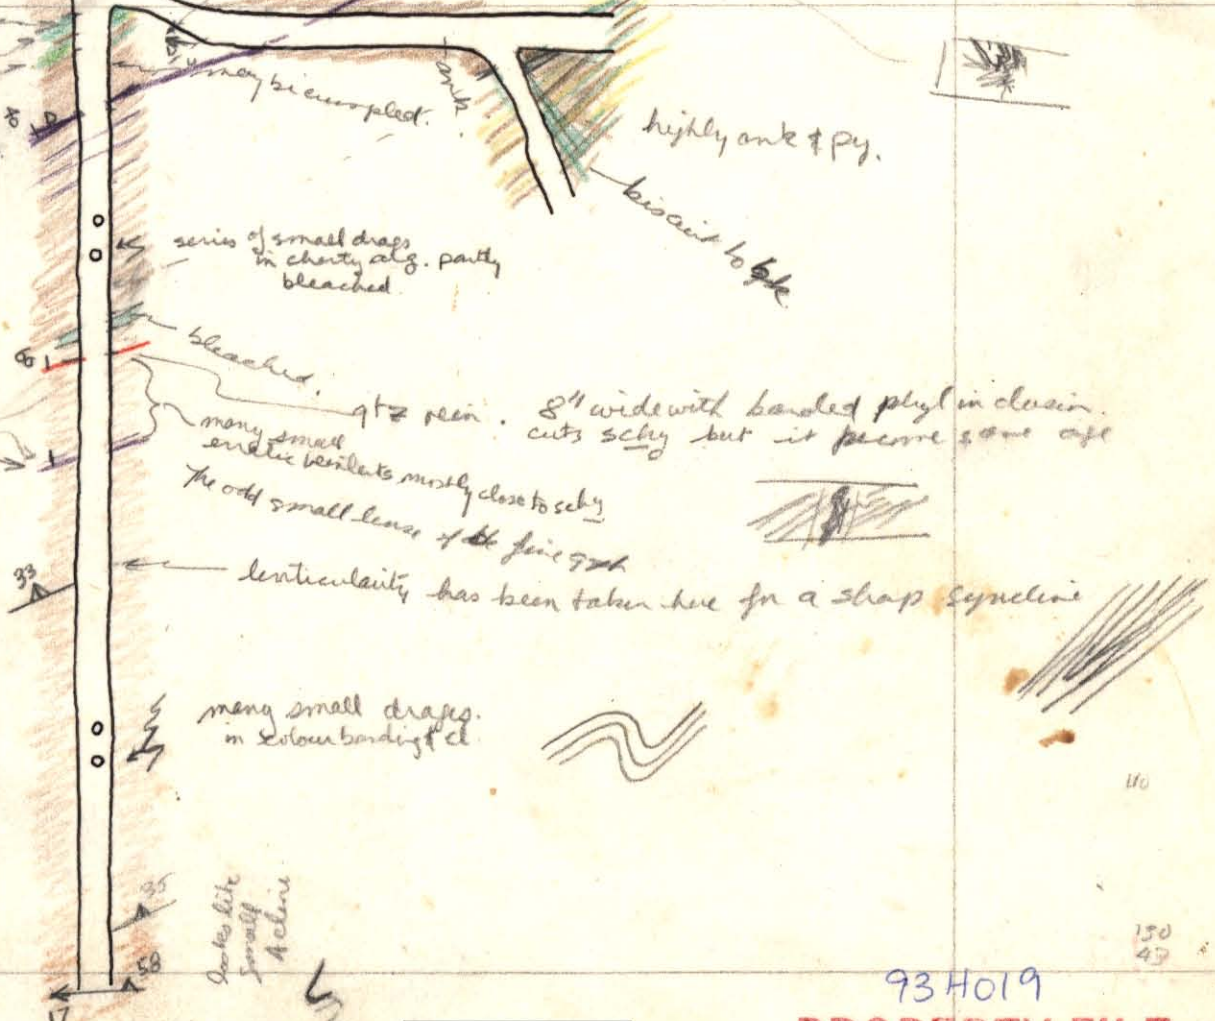 may be crumpled.
ank
highly ank & py.
biscuit to blk
series of small drags
in cherty arg. partly
bleached
bleached.
qtz vein. 8" wide with banded phyl inclusion.
cuts schy but it same age
many small
erratic veinlets mostly close to schy
The odd small lense of the fine
33
lenticularity has been taken here for a shap syncline
many small drags.
in colour banding &
110
35
looks like
small
Acline
130
43
58
17
93H019
PROPERTY FILE